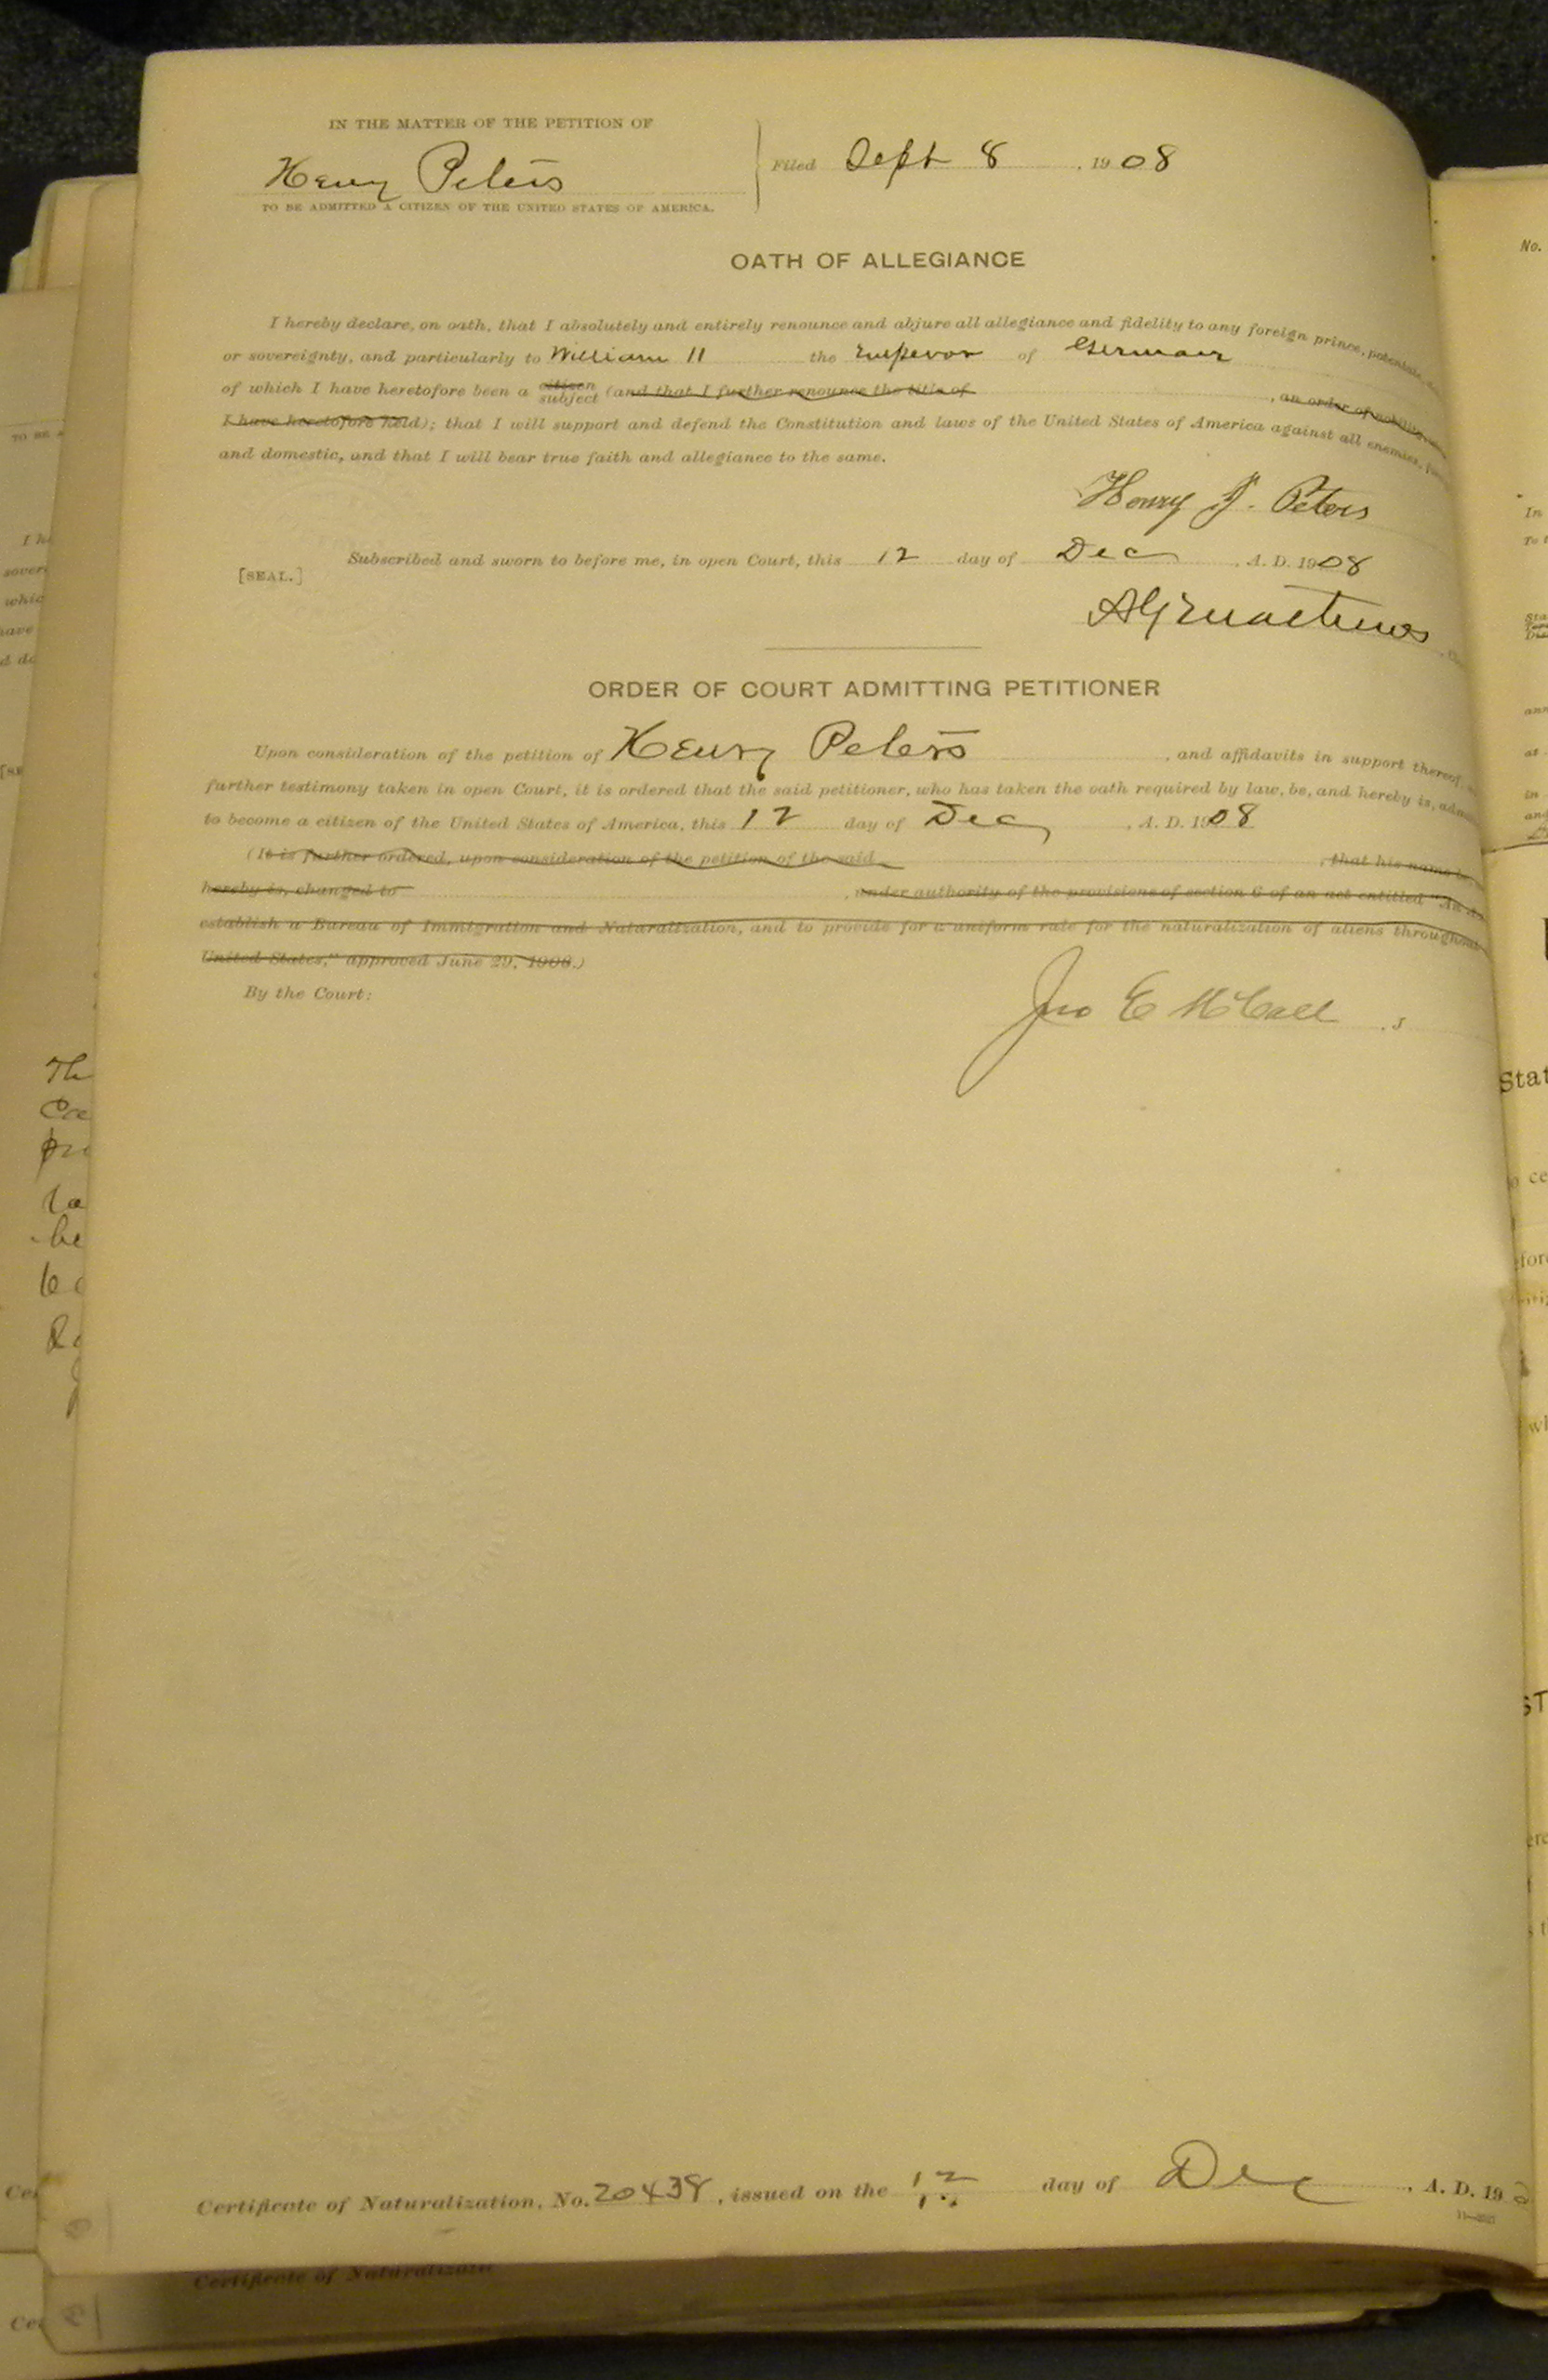 IN THE MATTER OF THE PETITION OF
Henry Peters
TO BE ADMITTED A CITIZEN OF THE UNITED STATES OF AMERICA.
Filed Sept 8, 1908
OATH OF ALLEGIANCE
I hereby declare, on oath, that I absolutely and entirely renounce and abjure all allegiance and fidelity to any foreign prince, potentate,
or sovereignty, and particularly to William II the Emperor of German
of which I have heretofore been a citizen subject (and that I further renounce the title of , an order of nobility,
I have heretofore held); that I will support and defend the Constitution and laws of the United States of America against all enemies,
and domestic, and that I will bear true faith and allegiance to the same.
Henry J. Peters
[SEAL.] Subscribed and sworn to before me, in open Court, this 12 day of Dec, A. D. 1908
ORDER OF COURT ADMITTING PETITIONER
Upon consideration of the petition of Henry Peters, and affidavits in support thereof
further testimony taken in open Court, it is ordered that the said petitioner, who has taken the oath required by law, be, and hereby is,
to become a citizen of the United States of America, this 12 day of Dec, A. D. 1908
(It is further ordered, upon consideration of the petition of the said , that his name be
hereby is, changed to , under authority of the provisions of section 6 of an act entitled "An
establish a Bureau of Immigration and Naturalization, and to provide for a uniform rule for the naturalization of aliens throughout
United States," approved June 29, 1906.)
By the Court:
Jno E McCall
Certificate of Naturalization, No. 20438, issued on the 12 day of Dec, A. D. 19
Certificate of